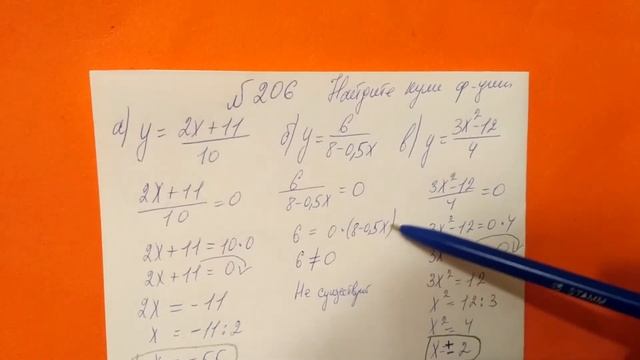 №206 Найдите нули ф-ции
а) y = (2x+11)/10 б) y = 6/(8-0,5x) в) y = (3x²-12)/4
(2x+11)/10 = 0
2x+11 = 10·0
2x+11 = 0
2x = -11
x = -11:2
6/(8-0,5x) = 0
6 = 0·(8-0,5x)
6 ≠ 0
Не существует
(3x²-12)/4 = 0
3x²-12 = 0·4
3x² = 12
x² = 12:3
x² = 4
x = ± 2
STAMM